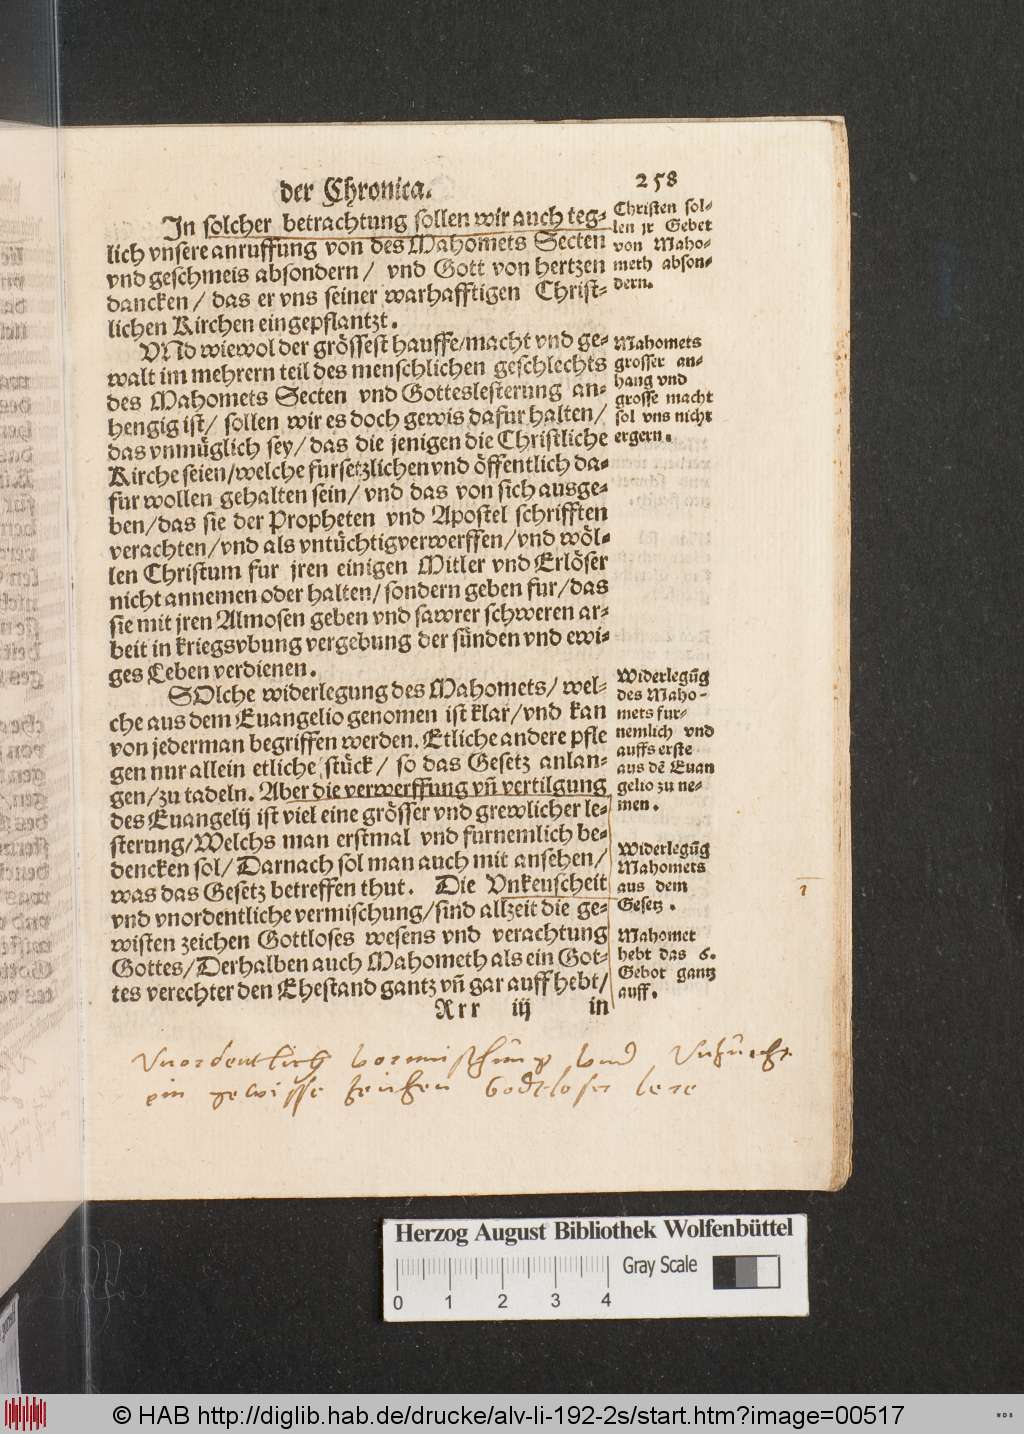 der Chronica.
258
In solcher betrachtung sollen wir auch teg-
lich vnsere anruffung von des Mahomets Secten
vnd geschmeis absondern / vnd Gott von hertzen
dancken / das er vns seiner warhafftigen Christ-
lichen Kirchen eingepflantzt.
Christen sol-
len jr Gebet
von Maho-
meth abson-
dern.
VNd wiewol der grössest hauffe/macht vnd ge-
walt im mehrern teil des menschlichen geschlechts
des Mahomets Secten vnd Gotteslesterung an-
hengig ist/ sollen wir es doch gewis dafur halten/
das vnmüglich sey/das die jenigen die Christliche
Kirche seien/welche fursetzlichen vnd öffentlich da-
fur wollen gehalten sein/ vnd das von sich ausge-
ben/das sie der Propheten vnd Apostel schrifften
verachten/vnd als vntüchtig verwerffen/vnd wöl-
len Christum fur jren einigen Mitler vnd Erlöser
nicht annemen oder halten/sondern geben fur/das
sie mit jren Almosen geben vnd sawrer schweren ar-
beit in kriegsvbung vergebung der sünden vnd ewi-
ges Leben verdienen.
Mahomets
grosser an-
hang vnd
grosse macht
sol vns nicht
ergern.
SOlche widerlegung des Mahomets/ wel-
che aus dem Euangelio genomen ist klar/vnd kan
von jederman begriffen werden. Etliche andere pfle
gen nur allein etliche stück/ so das Gesetz anlan-
gen/zu tadeln. Aber die verwerffung vñ vertilgung
des Euangelij ist viel eine grösser vnd grewlicher le-
sterung/Welchs man erstmal vnd furnemlich be-
dencken sol/ Darnach sol man auch mit ansehen/
was das Gesetz betreffen thut. Die Vnkeuscheit
vnd vnordentliche vermischung/sind allzeit die ge-
wisten zeichen Gottloses wesens vnd verachtung
Gottes/Derhalben auch Mahometh als ein Got-
tes verechter den Ehestand gantz vñ gar auff hebt/
Widerlegūg
des Maho-
mets fur-
nemlich vnd
auffs erste
aus dē Euan
gelio zu ne-
men.
Widerlegūg
Mahomets
aus dem
Gesetz.
1
Mahomet
hebt das 6.
Gebot gantz
auff.
Rrr iij in
Vnordentlich vormischung vnd Vnzucht
ein gewisse zeichen Godtloser lere
Herzog August Bibliothek Wolfenbüttel
Gray Scale
0 1 2 3 4
© HAB http://diglib.hab.de/drucke/alv-li-192-2s/start.htm?image=00517
WDB